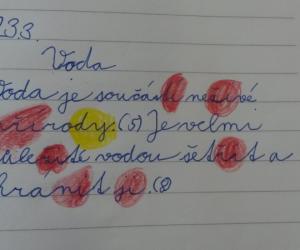 233.
Voda
Voda je součástí neživé
přírody. (5) Je velmi
důležité vodou šetřit a
chránit ji. (8